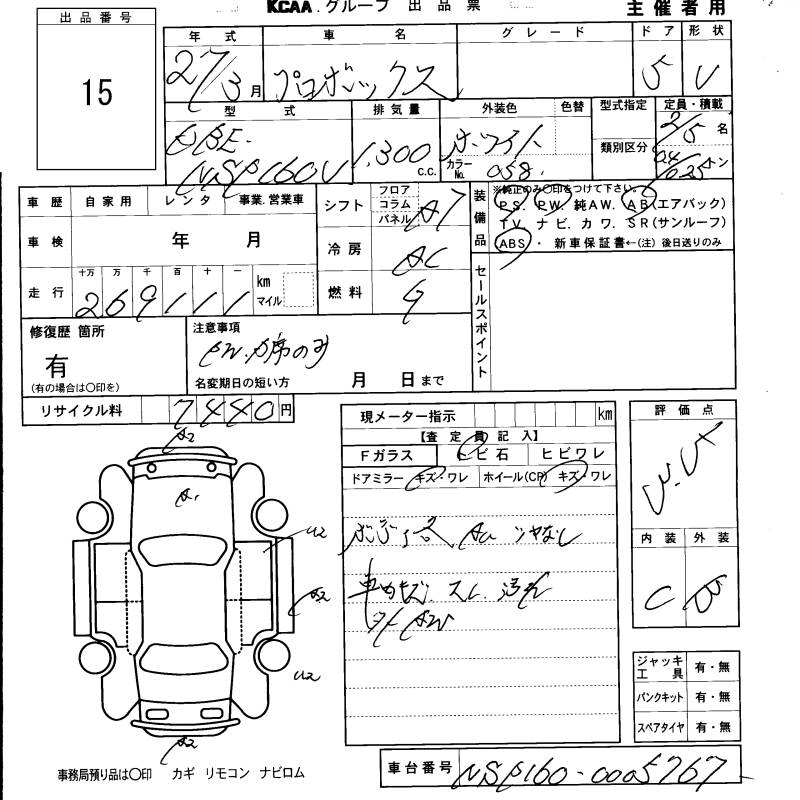 KCAA.グループ 出品票
主催者用
出品番号
15
年式 車名 グレード ドア 形状
27/3月 プロボックス 5 V
型式 排気量 外装色 色替 型式指定 定員・積載
DBE-
NSP160V 1,300 c.c. ホワイト
カラーNo. 058
類別区分
2/5名
トン
車歴 自家用 レンタ 事業.営業車
車検 年 月
走行 十万 万 千 百 十 一 km マイル
269111
シフト フロア コラム パネル AT
冷房 AC
燃料 G
装備品
※純正のみ〇印をつけて下さい。
P.S. P.W. 純AW. AB(エアバック)
TV. ナビ. カワ. SR(サンルーフ)
ABS・ 新車保証書←(注) 後日送りのみ
セールスポイント
修復歴 箇所
有
(有の場合は〇印を)
注意事項
PW.
席のみ
名変期日の短い方 月 日まで
リサイクル料 7440円
現メーター指示 km
【査定員記入】
Fガラス トビ石 ヒビワレ
ドアミラー キズ・ワレ ホイール(CP) キズ・ワレ
ツヤなし
キズ スレ 汚れ
評価点
内装 外装
C
A2
A1
U2
A2
U2
A2
ジャッキ工具 有・無
パンクキット 有・無
スペアタイヤ 有・無
事務局預り品は〇印 カギ リモコン ナビロム
車台番号 NSP160-0005767